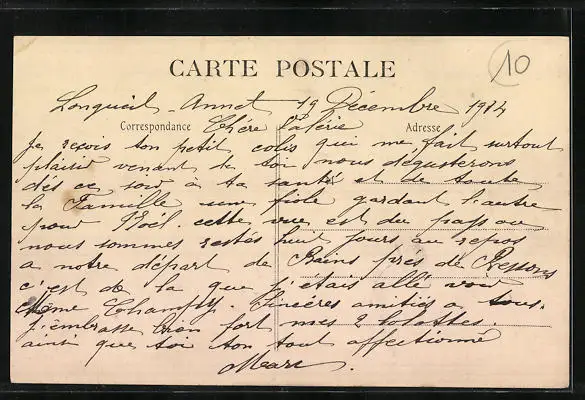 10
CARTE POSTALE
Longueil-Annel 19 Décembre 1914
Correspondance
Adresse
Chère Valérie
Je reçois ton petit colis qui me fait surtout
plaisir venant de toi nous dégusterons
dès ce soir à ta santé et de toute
la Famille une fiole gardant l'autre
pour Noël. cette vue est du pays ou
nous sommes restés huit jours au repos
a notre départ de Bains près de Ressons
c'est de la que j'étais allé voir
Mme Champy. Sincères amitiés a tous.
J'embrasse bien fort mes 2 lolottes.
ainsi que toi ton tout affectionné
Marc.